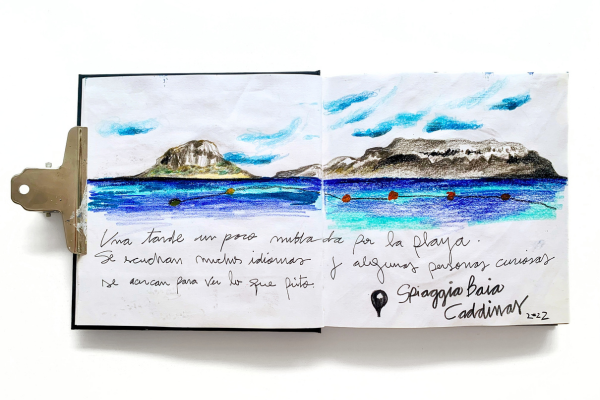 Una tarde un poco nublada por la playa.
Se escuchan muchos idiomas y algunas personas curiosas
se acercan para ver lo que pinto.
Spiaggia Baia
Caddinas
2022